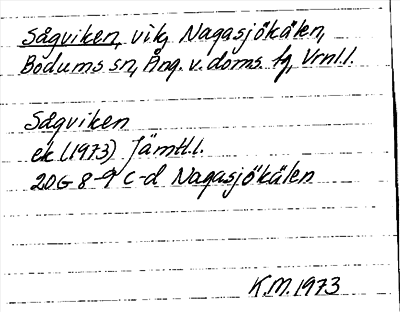 Sågviken, vik, Nagasjökälen,
Bodums sn, Ång. v. doms. fg, Vrnl.l.
Sågviken
ek (1973) Jämtl.l.
20G 8-9 c-d Nagasjökälen
K.M. 1973